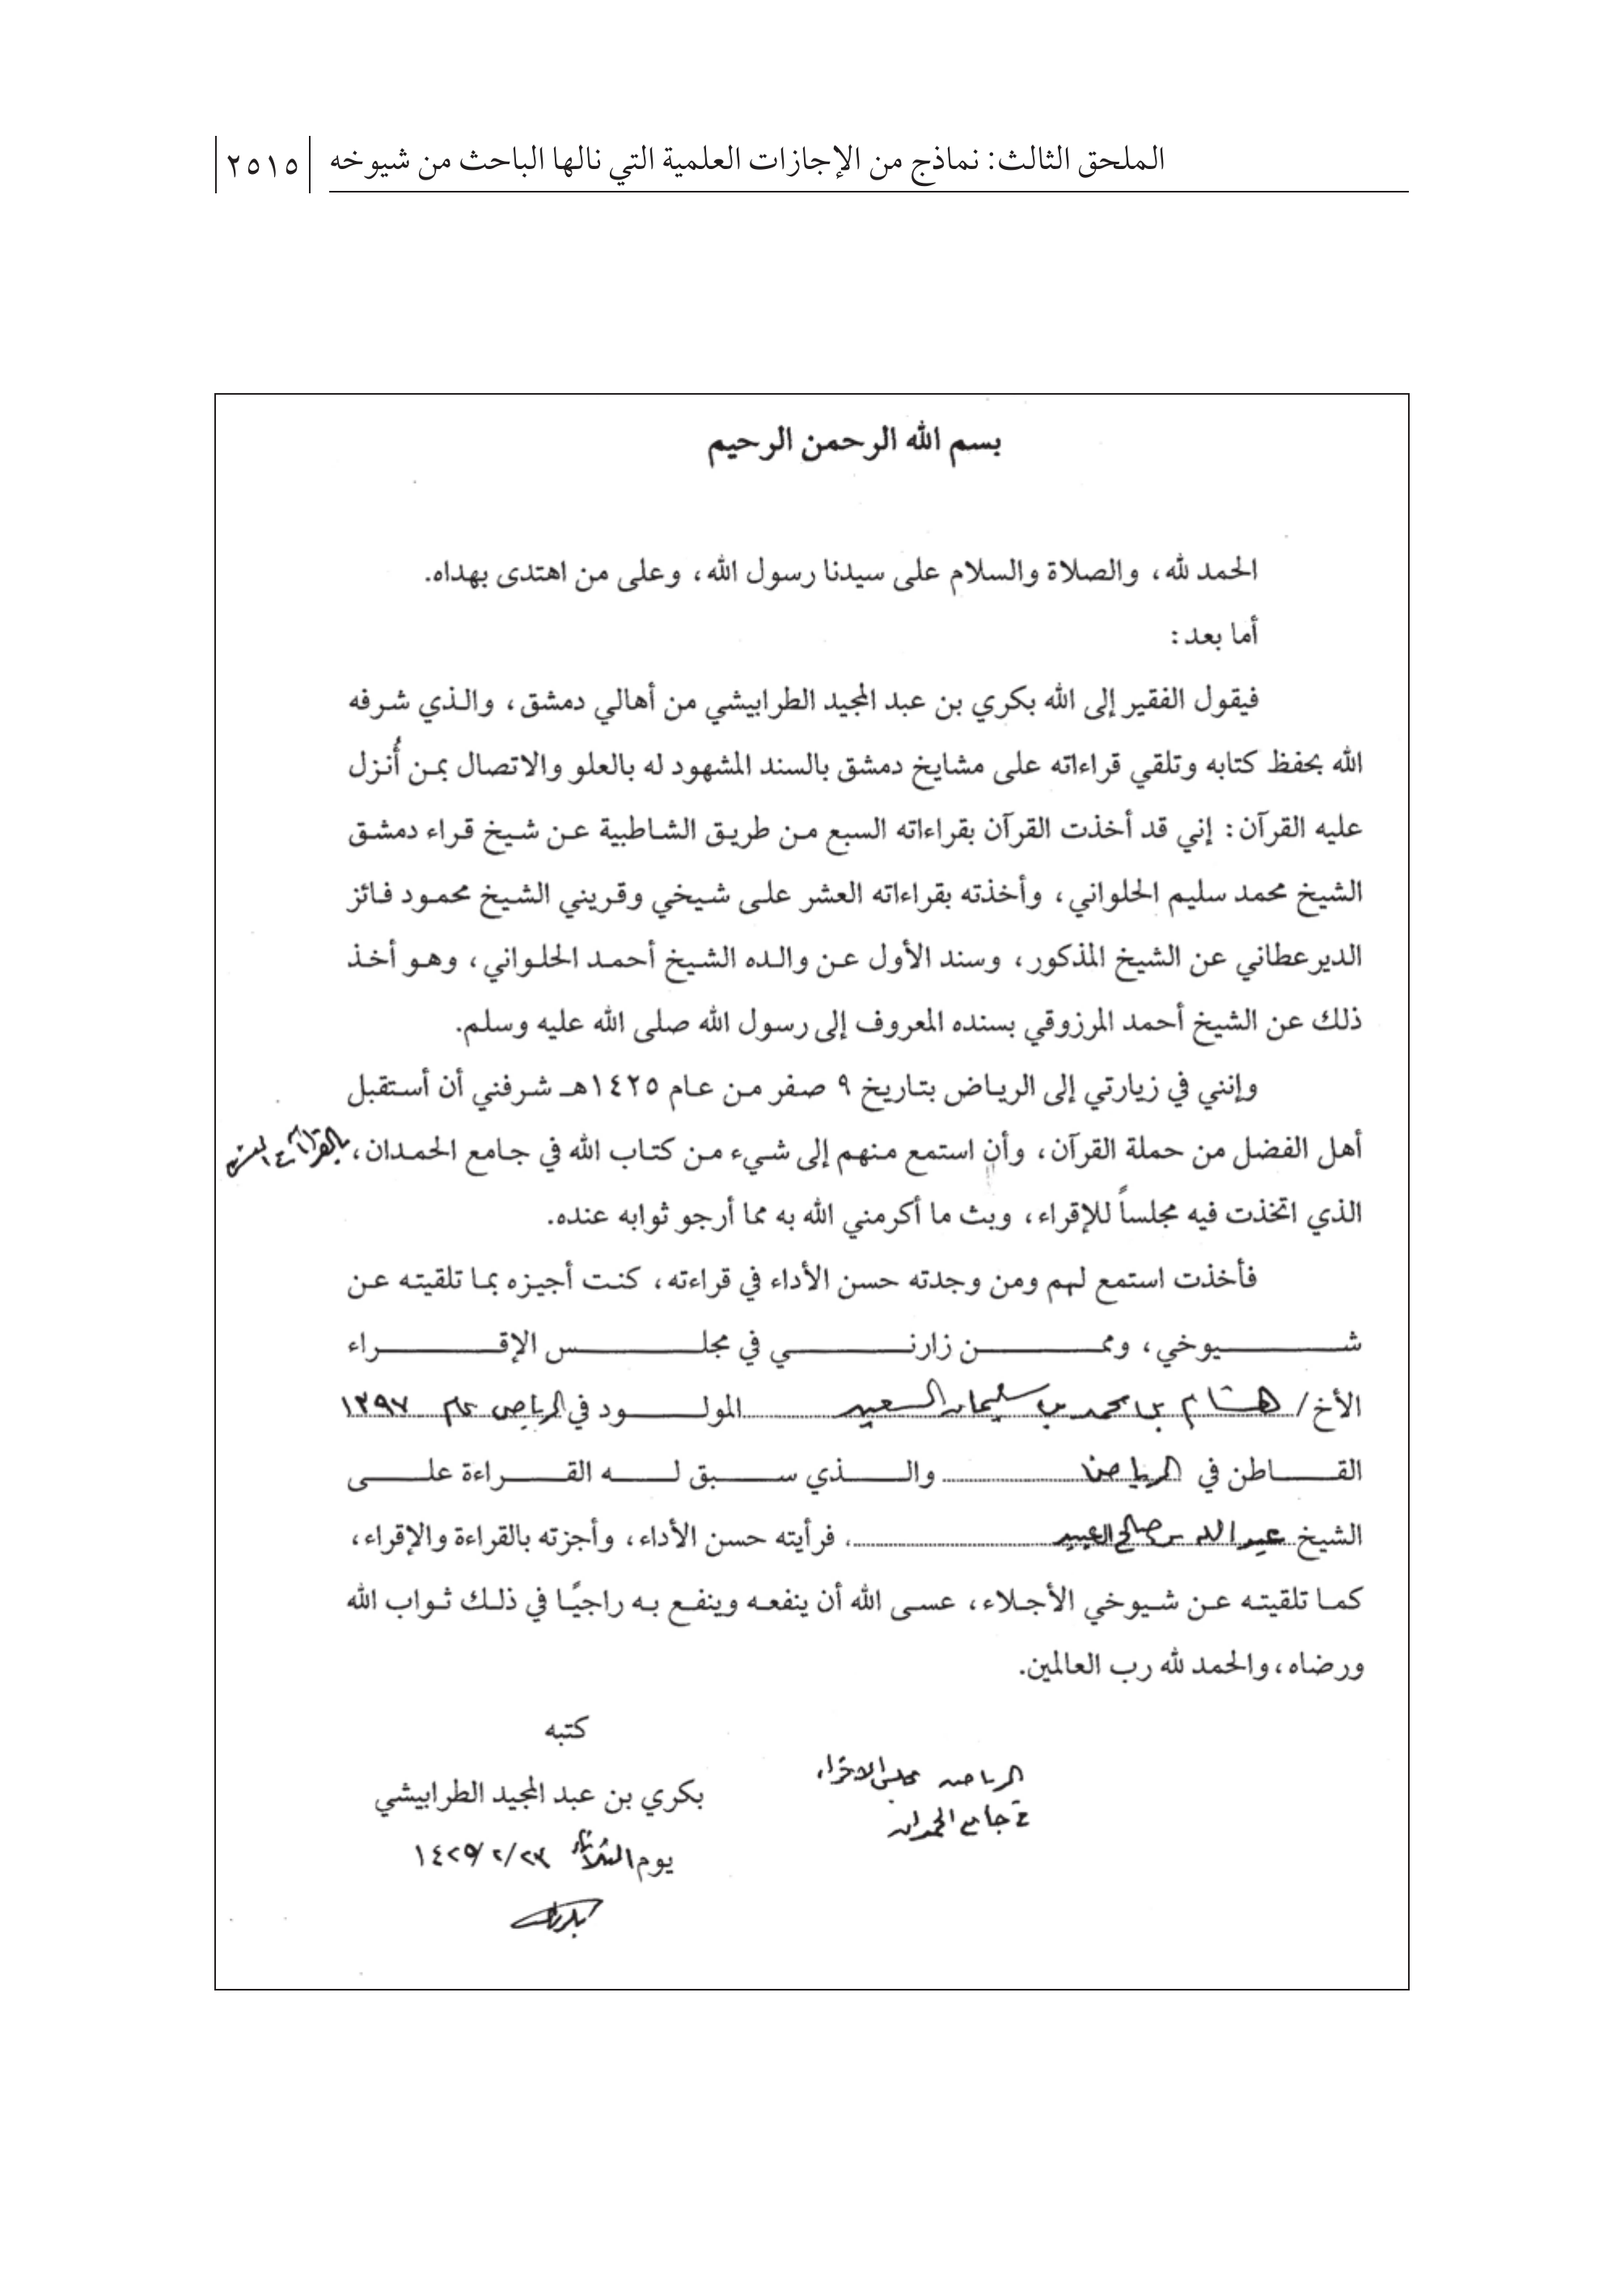 الملحق الثالث: نماذج من الإجازات العلمية التي نالها الباحث من شيوخه ٢٥١٥
بسم الله الرحمن الرحيم
الحمد لله، والصلاة والسلام على سيدنا رسول الله، وعلى من اهتدى بهداه.
أما بعد:
فيقول الفقير إلى الله بكري بن عبد المجيد الطرابيشي من أهالي دمشق، والذي شرفه
الله بحفظ كتابه وتلقي قراءاته على مشايخ دمشق بالسند المشهود له بالعلو والاتصال بمن أُنزل
عليه القرآن: إني قد أخذت القرآن بقراءاته السبع من طريق الشاطبية عن شيخ قراء دمشق
الشيخ محمد سليم الحلواني، وأخذته بقراءاته العشر على شيخي وقريني الشيخ محمود فائز
الديرعطاني عن الشيخ المذكور، وسند الأول عن والده الشيخ أحمد الحلواني، وهو أخذ
ذلك عن الشيخ أحمد المرزوقي بسنده المعروف إلى رسول الله صلى الله عليه وسلم.
وإنني في زيارتي إلى الرياض بتاريخ ٩ صفر من عام ١٤٢٥هـ شرفني أن أستقبل
أهل الفضل من حملة القرآن، وأن استمع منهم إلى شيء من كتاب الله في جامع الحمدان،
الذي اتخذت فيه مجلساً للإقراء، وبث ما أكرمني الله به مما أرجو ثوابه عنده.
فأخذت استمع لهم ومن وجدته حسن الأداء في قراءته، كنت أجيزه بما تلقيته عن
شيوخي، وممن زارني في مجلس الإقراء
الأخ/ هشام بن محمد بن سليمان السعيد المولود في الرياض عام ١٣٩٧
القاطن في الرياض والذي سبق له القراءة على
الشيخ عبد الله بن صالح العبيد، فرأيته حسن الأداء، وأجزته بالقراءة والإقراء،
كما تلقيته عن شيوخي الأجلاء، عسى الله أن ينفعه وينفع به راجيًا في ذلك ثواب الله
ورضاه، والحمد لله رب العالمين.
كتبه
الرياض مجلس الاقراء
بكري بن عبد المجيد الطرابيشي
في جامع الحمدان
يوم الثلاثاء ٢٣/٢/١٤٢٥